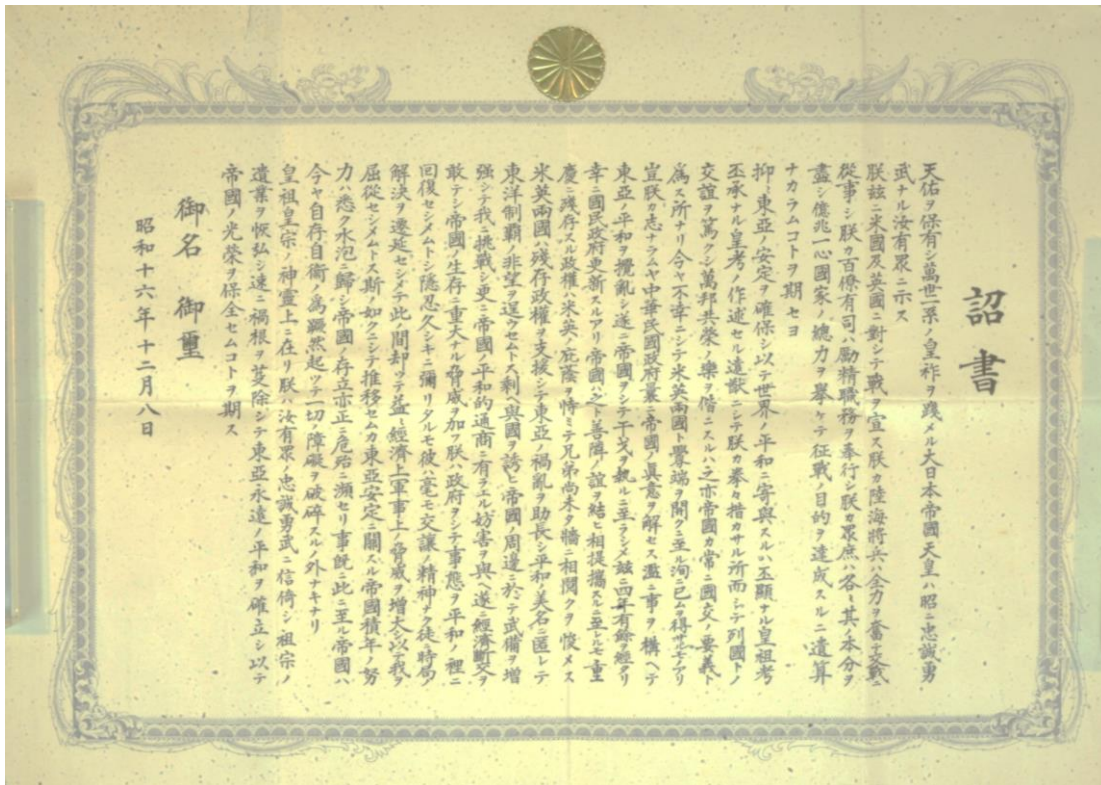 詔書
天佑ヲ保有シ萬世一系ノ皇祚ヲ踐メル大日本帝國天皇ハ昭ニ忠誠勇
武ナル汝有眾ニ示ス
朕茲ニ米國及英國ニ對シテ戰ヲ宣ス朕カ陸海將兵ハ全力ヲ奮テ交戰ニ
從事シ朕カ百僚有司ハ勵精職務ヲ奉行シ朕カ眾庶ハ各〻其ノ本分ヲ
盡シ億兆一心國家ノ總力ヲ擧ケテ征戰ノ目的ヲ達成スルニ遺算
ナカラムコトヲ期セヨ
抑〻東亞ノ安定ヲ確保シ以テ世界ノ平和ニ寄與スルハ丕顯ナル皇祖考
丕承ナル皇考ノ作述セル遠猷ニシテ朕カ拳々措カサル所而シテ列國トノ
交誼ヲ篤クシ萬邦共榮ノ樂ヲ偕ニスルハ之亦帝國カ常ニ國交ノ要義ト
爲ス所ナリ今ヤ不幸ニシテ米英兩國ト釁端ヲ開クニ至ル洵ニ已ムヲ得サルモノアリ
豈朕カ志ナラムヤ中華民國政府曩ニ帝國ノ眞意ヲ解セス濫ニ事ヲ構ヘテ
東亞ノ平和ヲ攪亂シ遂ニ帝國ヲシテ干戈ヲ執ルニ至ラシメ茲ニ四年有餘ヲ經タリ
幸ニ國民政府更新スルアリ帝國ハ之ト善隣ノ誼ヲ結ヒ相提攜スルニ至レルモ重
慶ニ殘存スル政權ハ米英ノ庇蔭ヲ恃ミテ兄弟尚未タ牆ニ相鬩クヲ悛メス
米英兩國ハ殘存政權ヲ支援シテ東亞ノ禍亂ヲ助長シ平和ノ美名ニ匿レテ
東洋制覇ノ非望ヲ逞ウセムトス剩ヘ與國ヲ誘ヒ帝國ノ周邊ニ於テ武備ヲ增
强シテ我ニ挑戰シ更ニ帝國ノ平和的通商ニ有ラユル妨害ヲ與ヘ遂ニ經濟斷交ヲ
敢テシ帝國ノ生存ニ重大ナル脅威ヲ加フ朕ハ政府ヲシテ事態ヲ平和ノ裡ニ
回復セシメムトシ隱忍久シキニ彌リタルモ彼ハ毫モ交讓ノ精神ナク徒ニ時局ノ
解決ヲ遷延セシメテ此ノ間却ツテ益〻經濟上軍事上ノ脅威ヲ增大シ以テ我ヲ
屈從セシメムトス斯ノ如クニシテ推移セムカ東亞安定ニ關スル帝國積年ノ努
力ハ悉ク水泡ニ歸シ帝國ノ存立亦正ニ危殆ニ瀕セリ事旣ニ此ニ至ル帝國ハ
今ヤ自存自衞ノ爲蹶然起ツテ一切ノ障礙ヲ破碎スルノ外ナキナリ
皇祖皇宗ノ神靈上ニ在リ朕ハ汝有眾ノ忠誠勇武ニ信倚シ祖宗ノ
遺業ヲ恢弘シ速ニ禍根ヲ芟除シテ東亞永遠ノ平和ヲ確立シ以テ
帝國ノ光榮ヲ保全セムコトヲ期ス
御名 御璽
昭和十六年十二月八日